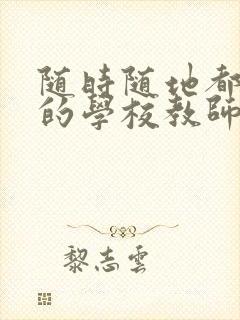 随時随地都
的學校教師
黎志雲